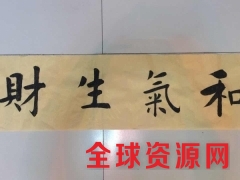 和氣生財
全球资源网